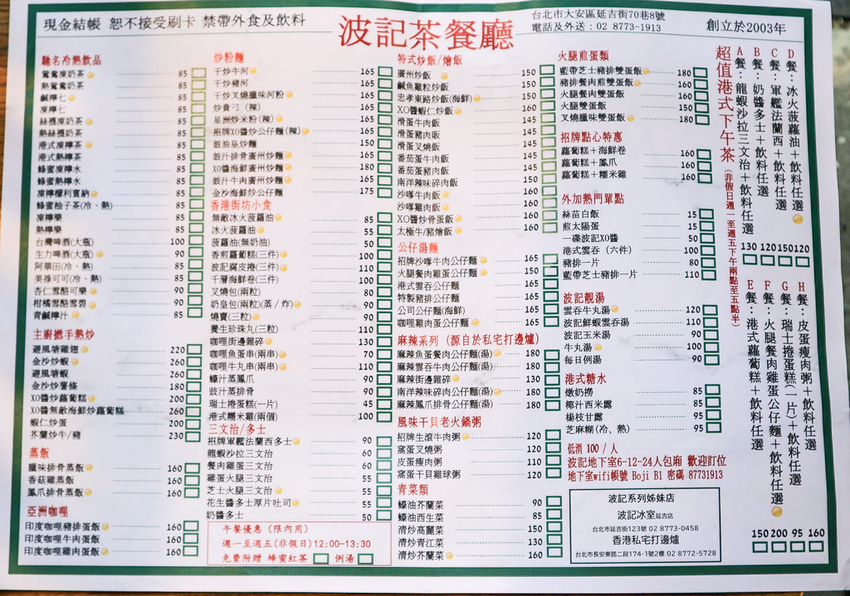 現金結帳 恕不接受刷卡 禁帶外食及飲料
波記茶餐廳
台北市大安區延吉街70巷8號
電話及外送：02 8773-1913
創立於2003年
馳名冷熱飲品
鴛鴦凍奶茶 85
熱鴛鴦奶茶 85
鹹檸七 85
凍檸七 85
絲襪凍奶茶 85
熱絲襪奶茶 85
港式凍檸茶 85
港式熱檸茶 85
蜂蜜凍檸水 85
蜂蜜熱檸水 85
凍檸檬利賓納 85
蜂蜜柚子茶(冷、熱) 85
凍檸樂 85
熱檸樂 85
台灣啤酒(大瓶) 100
生力啤酒(大瓶) 90
阿華田(冷、熱) 85
美祿可可(冷、熱) 85
杏仁雪酪可樂 90
柑橘雪酪雪碧 90
青鹹檸汁 85
主廚撚手熱炒
避風塘雞翅 220
金沙炒蝦 260
避風塘蝦 260
金沙炒薯條 180
XO醬炒蘿蔔糕 200
XO醬無敵海鮮炒蘿蔔糕 260
蝦仁炒蛋 200
芥蘭炒牛/豬 230
蒸飯
臘味排骨蒸飯 160
香菇雞蒸飯 160
鳳爪排骨蒸飯 160
亞洲咖哩
印度咖哩豬排蛋飯 160
印度咖哩牛肉蛋飯 160
印度咖哩雞肉蛋飯 160
炒粉麵
干炒牛河 165
干炒豬河 165
干炒叉燒臘味河粉 165
炒貴刁（辣） 165
星洲炒米粉(辣) 165
招牌XO醬炒公仔麵(辣) 165
豉油皇炒麵 145
豉汁排骨廣州炒麵 165
XO醬海鮮廣州炒麵 180
豉汁牛肉廣州炒麵 165
金沙海鮮炒公仔麵 175
香港街坊小食
無敵冰火菠蘿油 85
冰火菠蘿油 55
菠蘿油(無奶油) 50
香煎蘿蔔糕(三件) 100
波記腐皮捲(三件) 100
千層海鮮卷(三件) 100
叉燒包(兩粒) 80
奶皇包(兩粒)(蒸/炸) 90
燒賣(三粒) 90
養生珍珠丸(三粒) 110
咖哩街邊雞碎 130
咖哩魚蛋串(兩串) 70
咖哩牛丸串(兩串) 80
蠔汁蒸鳳爪 90
豉汁蒸排骨 90
瑞士捲蛋糕(一片) 45
港式糯米雞(兩個) 100
三文治/多士
招牌軍艦法蘭西多士 90
龍蝦沙拉三文治 90
餐肉雞蛋三文治 80
雞蛋火腿三文治 80
芝士火腿三文治 80
花生醬多士厚片吐司 50
奶醬多士 50
午餐優惠（限內用）
週一至週五(非假日)12:00-13:30
免費附贈 蜂蜜紅茶 例湯
特式炒飯/燴飯
廣州炒飯 150
鹹魚雞粒炒飯 150
忠孝東路炒飯(海鮮) 150
XO醬蝦仁炒飯 150
滑蛋牛肉飯 150
滑蛋豬肉飯 150
滑蛋叉燒飯 150
番茄蛋牛肉飯 150
番茄蛋豬肉飯 150
南洋辣味碎肉飯 150
沙嗲牛肉飯 150
沙嗲雞肉飯 150
XO醬炒骨蛋飯 150
太極牛/豬燴飯 150
公仔湯麵
招牌沙嗲牛肉公仔麵 165
火腿餐肉雞蛋公仔麵 150
港式雲吞公仔麵 150
特製豬排公仔麵 150
公司公仔麵(海鮮) 150
咖哩雞肉蛋公仔麵 150
麻辣系列（源自於私宅打邊爐）
麻辣魚蛋餐肉公仔麵(湯) 180
麻辣雲吞牛肉公仔麵(湯) 180
麻辣街邊雞碎 130
南洋辣味碎肉公仔麵(湯) 180
麻辣鳳爪排骨公仔麵(湯) 180
風味干貝老火鍋粥
招牌生滾牛肉粥 120
窩蛋叉燒粥 120
皮蛋瘦肉粥 120
窩蛋干貝雞球粥 120
青菜類
蠔油芥蘭菜 90
蠔油西生菜 85
清炒高麗菜 150
清炒青江菜 130
清炒芥蘭菜 160
火腿煎蛋類
藍帶芝士豬排雙蛋飯 180
豬排餐肉煎雙蛋飯 160
火腿餐肉雙蛋飯 160
火腿雙蛋飯 160
叉燒臘味雙蛋飯 180
招牌點心特惠
蘿蔔糕＋海鮮卷 160
蘿蔔糕＋鳳爪 160
蘿蔔糕＋糯米雞 160
外加熱門單點
絲苗白飯 15
煎太陽蛋 15
一碟波記XO醬 50
港式雲吞（六件） 100
豬排一片 80
藍帶芝士豬排一片 110
波記靚湯
雲吞牛丸湯 90
波記鮮蝦雲吞湯 110
波記玉米湯 90
牛丸湯 90
每日例湯 90
港式糖水
燉奶撈 85
椰汁西米露 85
楊枝甘露 95
芝麻糊(冷、熱) 95
低消 100 / 人
波記地下室6-12-24人包廂 歡迎訂位
地下室wifi帳號 Boji B1 密碼 87731913
波記系列姊妹店
波記冰室延吉店
台北市延吉街123號 02 8773-0458
香港私宅打邊爐
台北市長安東路二段174-1號2樓 02 8772-5728
超值港式下午茶（非假日週一至週五下午兩點至五點半）
A餐：龍蝦沙拉三文治＋飲料任選 130
B餐：奶醬多士＋飲料任選 120
C餐：軍艦法蘭西＋飲料任選 150
D餐：冰火菠蘿油＋飲料任選 120
E餐：港式蘿蔔糕＋飲料任選 150
F餐：火腿餐肉雞蛋公仔麵＋飲料任選 200
G餐：瑞士捲蛋糕(一片)＋飲料任選 95
H餐：皮蛋瘦肉粥＋飲料任選 160